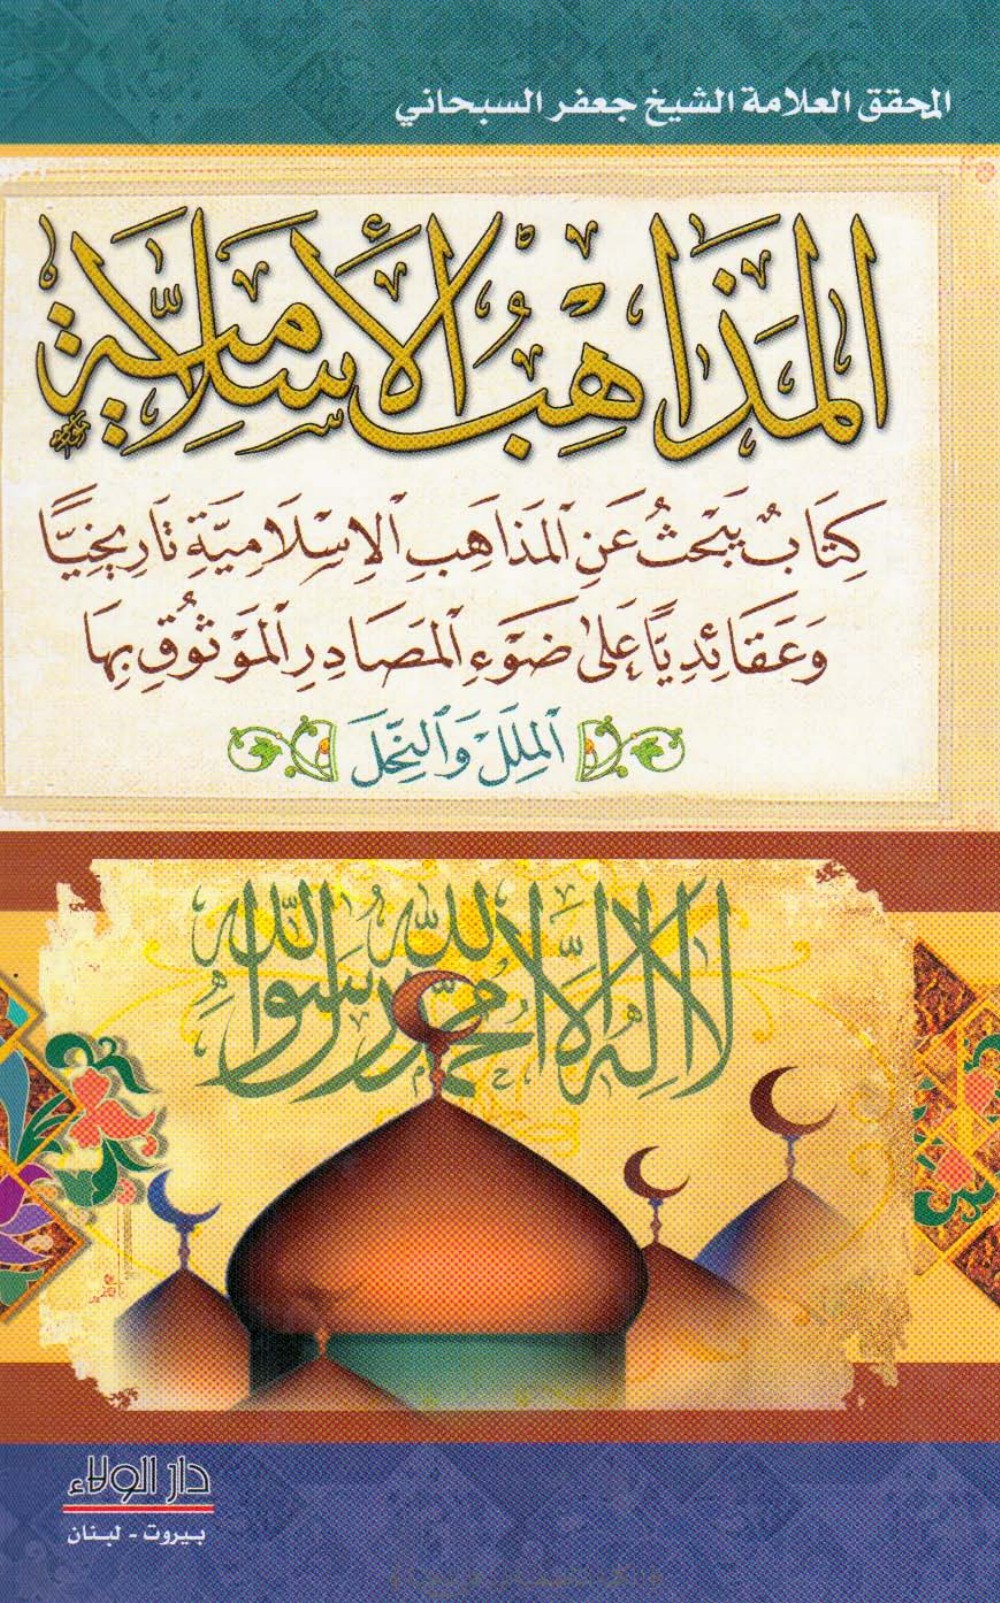 المحقق العلامة الشيخ جعفر السبحاني
المَذَاهِبُ الأَسلَامِيَّة
كِتَابٌ يَبْحَثُ عَنِ الْمَذَاهِبِ الإِسْلَامِيَّةِ تَارِيخِيًّا
وَعَقَائِدِيًّا عَلَى ضَوْءِ الْمَصَادِرِ الْمَوْثُوقِ بِهَا
الْمِلَلُ وَالنِّحَلُ
لا اله الا الله محمد رسول الله
دار الولاء
بيروت - لبنان